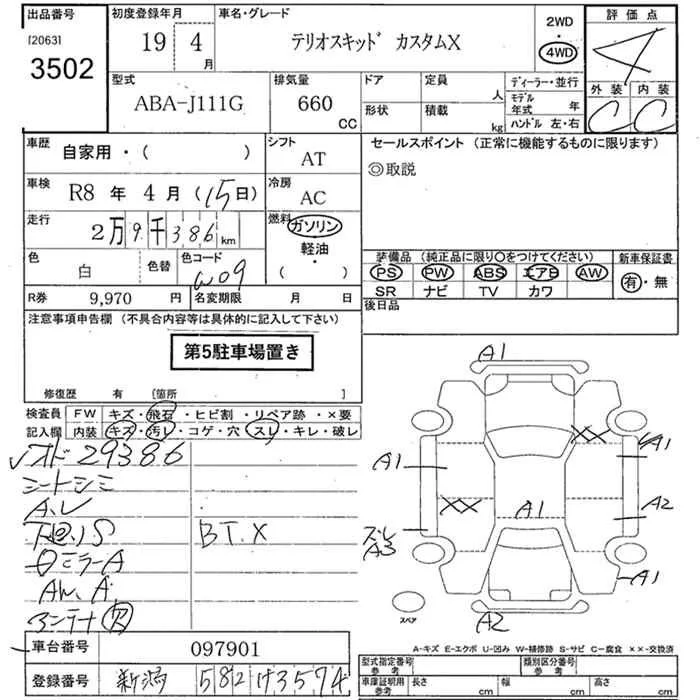 出品番号
[2063]
3502
初度登録年月
19 4 月
車名・グレード
テリオスキッド カスタムX
2WD
4WD
評価点
4
外装 内装
C C
型式
ABA-J111G
排気量
660 CC
ドア
形状
定員 人
積載 kg
ディーラー・並行
モデル年式 年
ハンドル 左・右
車歴
自家用・( )
シフト
AT
車検
R8 年 4 月 (15日)
冷房
AC
走行
2万9千386km
燃料
ガソリン
軽油・
( )
色
白
色替
色コード
W09
R券 9,970 円
名変期限 月 日
セールスポイント (正常に機能するものに限ります)
◎取説
装備品 (純正品に限り○をつけてください)
PS PW ABS エアB AW
SR ナビ TV カワ
新車保証書
有・無
後日品
注意事項申告欄 (不具合内容等は具体的に記入して下さい)
第5駐車場置き
修復歴 有 [箇所 ]
検査員
記入欄
FW キズ・飛石・ヒビ割・リペア跡・×要
内装 キズ・汚レ・コゲ・穴・スレ・キレ・破レ
オド29386
シートシミ
A.U
下廻りS
BT.X
ミラーA
AW.A
アンテナ欠
車台番号 097901
登録番号 新潟 582 け 3574
A1
XX
A1
A1
XX
A1
A2
ズレ
A3
A1
A2
スペア
A-キズ E-エクボ U-凹み W-補修跡 S-サビ C-腐食 ××-交換済
型式指定番号
参考
類別区分番号
参考
車庫証明用
参考
長さ cm
幅 cm
高さ cm